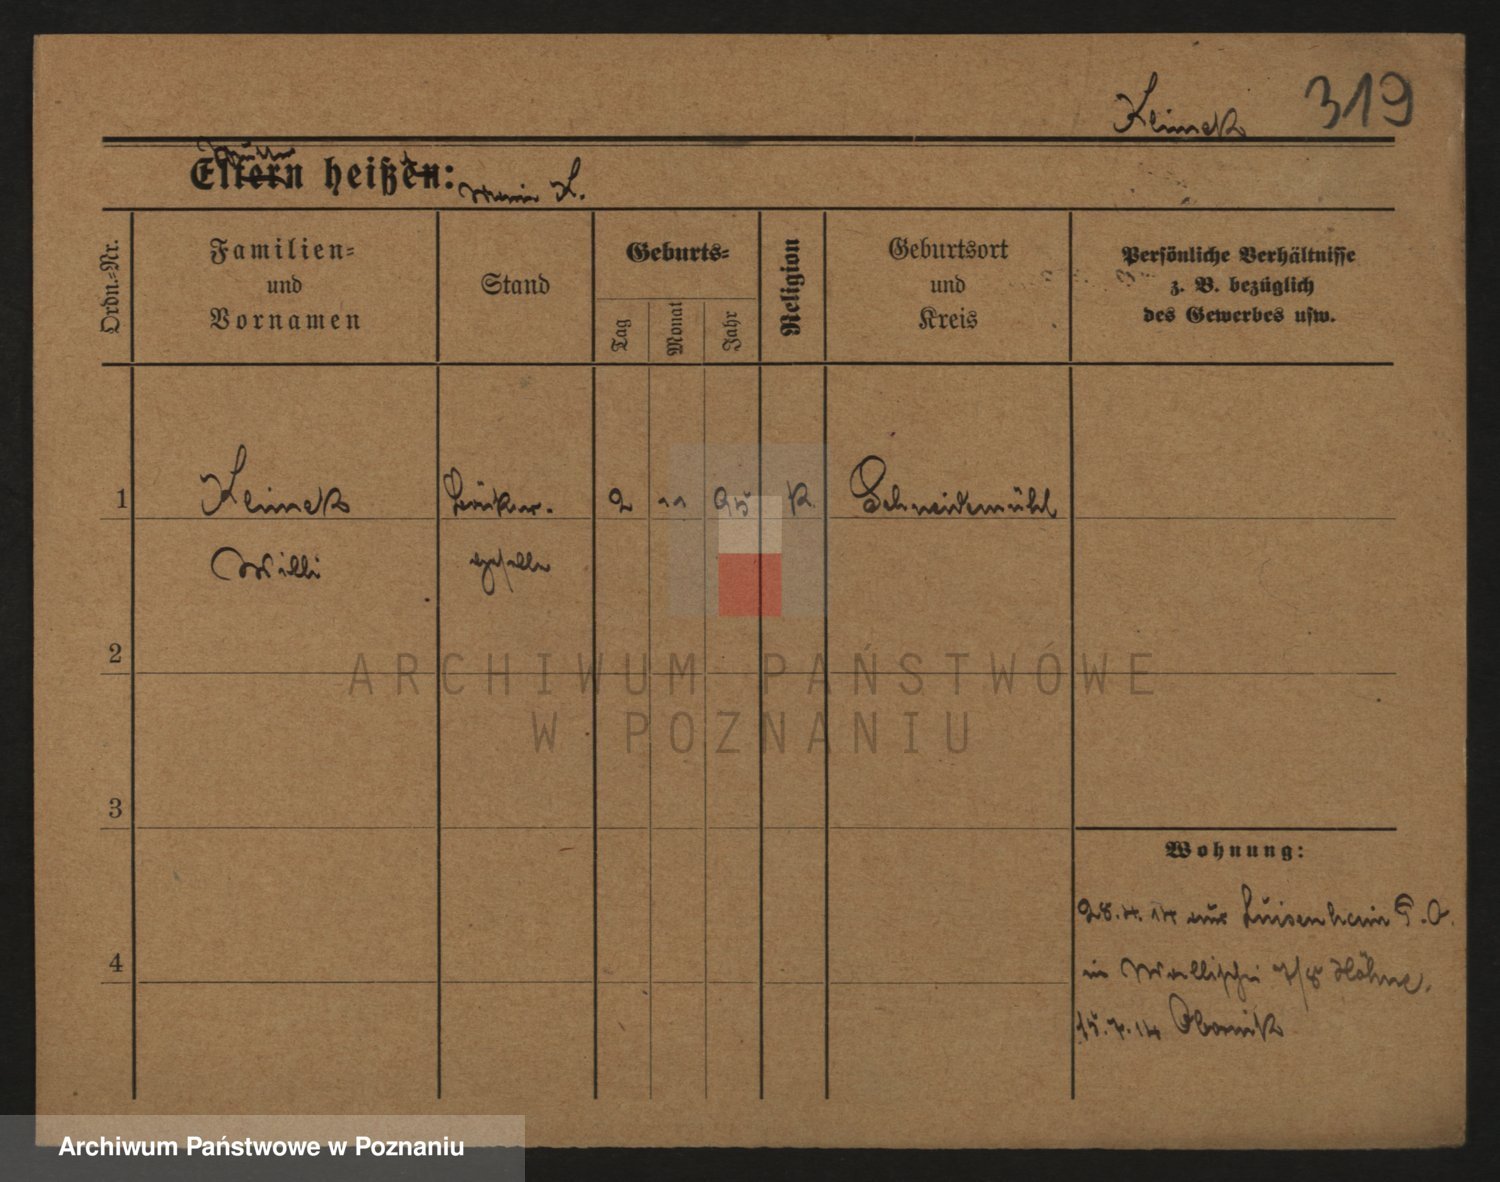 319
Klimek
Mutter
Eltern heißen: Marie K.
Ordn.-Nr.
Familien- und Vornamen
Stand
Geburts-
Tag
Monat
Jahr
Religion
Geburtsort und Kreis
Persönliche Verhältnisse
z. B. bezüglich
des Gewerbes usw.
1
Klimek
2 11 95 K
Schneidemühl
Willi
geselle
2
ARCHIWUM PAŃSTWOWE
W POZNANIU
3
Wohnung:
28.4.14 aus Luisenhain P. O.
4
in Wallischei 7/8 Höhne.
15.7.14 Obornik
Archiwum Państwowe w Poznaniu